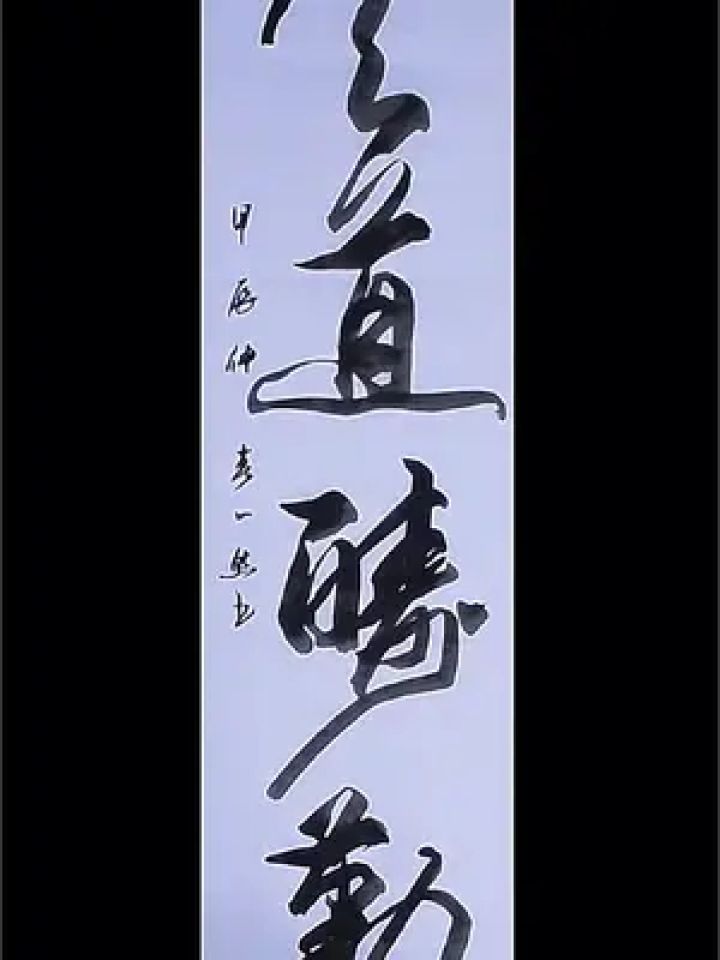 道酬勤
甲辰仲春一然书